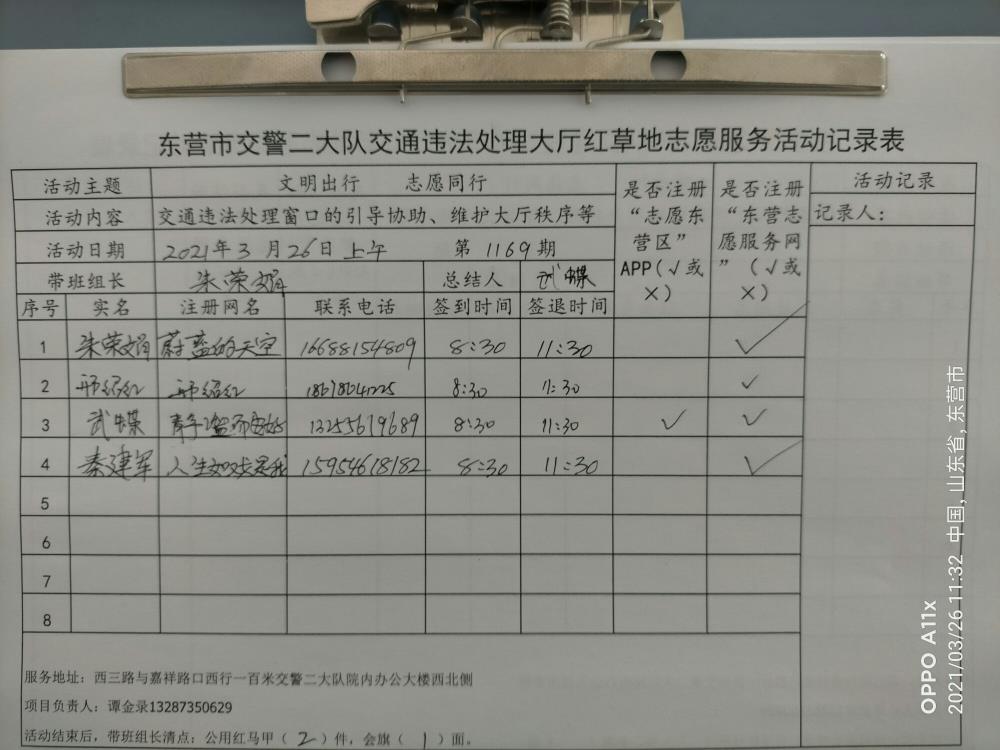 东营市交警二大队交通违法处理大厅红草地志愿服务活动记录表
活动主题 文明出行 志愿同行 是否注册“志愿东营区”APP(√或×) 是否注册“东营志愿服务网”(√或×) 活动记录
活动内容 交通违法处理窗口的引导协助、维护大厅秩序等 记录人:
活动日期 2021年3月26日上午 第1169期
带班组长 朱荣娟 总结人 武媒
序号 实名 注册网名 联系电话 签到时间 签退时间
1 朱荣娟 蔚蓝的天空 16688154809 8:30 11:30 √
2 邢绍红 邢绍红 8:30 11:30 √
3 武媒 13255679689 8:30 11:30 √ √
4 秦建军 人生如戏是我 15954618182 8:30 11:30 √
5
6
7
8
服务地址:西三路与嘉祥路口西行一百米交警二大队院内办公大楼西北侧
项目负责人:谭金录13287350629
活动结束后,带班组长清点:公用红马甲(2)件,会旗(1)面。
OPPO A11x
2021/03/26 11:32 中国,山东省,东营市